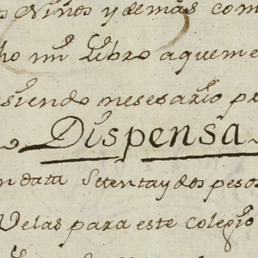 Niños y demás com
ho mi Libro aqueme
siendo nesesario pe
Dispensa
n data Setenta y dos pesos
Velas para este colegio